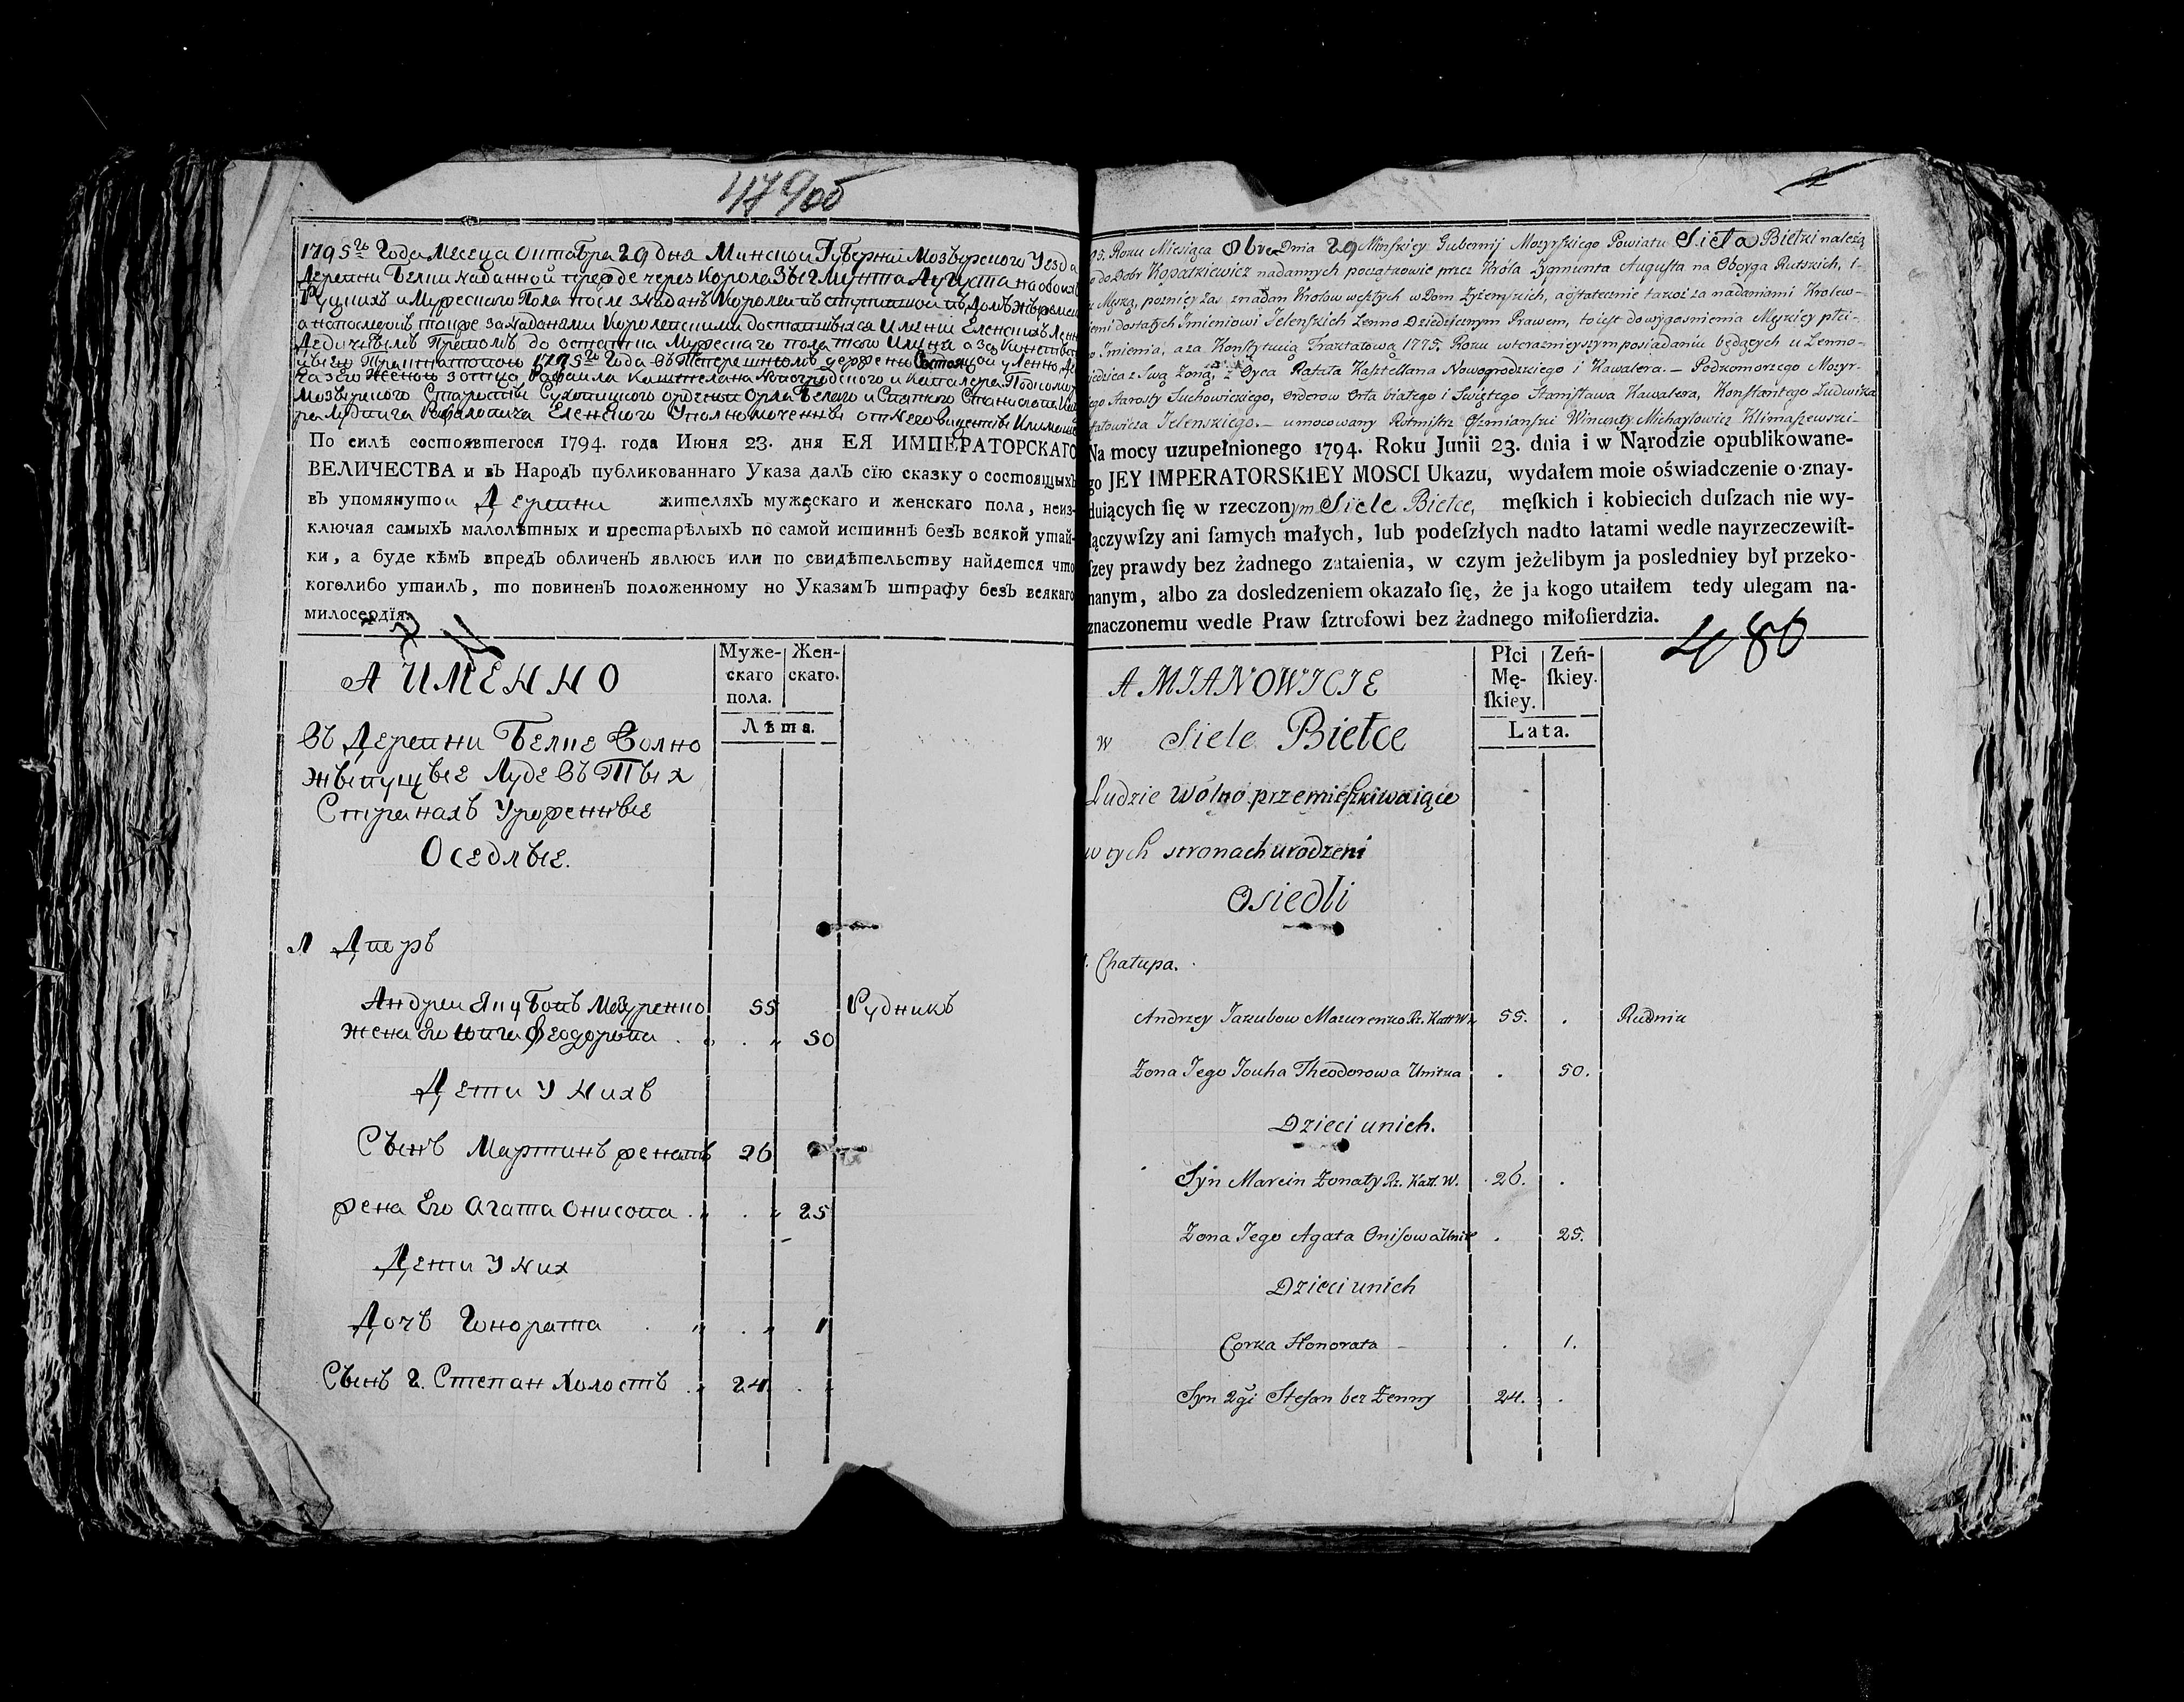 479об
1795го Года Месеца Октабра 29 дня Минской Губернии Мозырского Уезда
Деревни Белки наданной прежде через Короля Зыгмунта Августа на обоих
Рудких и Мужеского Пола после
а напоследок также за наданами Королевскими имении Еленских
Дедичным Правом до остатка Мужеского пола того имения а за
Трактатовою 1775го Года
За Его Женою з отца Рафаила Каштеляна Новогродского и Кавалера
Мозырского Старосты Суховицкого ордена Орла Белаго и Святого Станислава
Лудвига Рафаловича Еленского Уполномоченны от Него
По силѣ состоявшегося 1794. года Июня 23. дня ЕЯ ИМПЕРАТОРСКАГО
ВЕЛИЧЕСТВА и въ Народѣ публикованнаго Указа далъ сїю сказку о состоящыхъ
въ упомянутои Деревни жителяхъ мужескаго и женскаго пола, неиз-
ключая самыхъ малолѣтныхъ и престарѣлыхъ по самой истиннѣ безъ всякой утай-
ки, а буде кѣмъ впредъ обличенъ явлюсь или по свидѣтельству найдется что
коголибо утаилъ, то повиненъ положенному по Указамъ штрафу безъ всякаго
милосердїя.
А ИМЕННО
Муже-
скаго
пола.
Жен-
скаго.
Лѣта.
Въ Деревни Белце Волно
живущые Люде въ Тых
Странахъ Урожденные
Оседлые.
Двор
Андреи Якубовъ Мазуренко 55 Рудникъ
Жена Его Феодорова 50
Дети у Нихъ
Сынъ Мартинъ женатъ 26
жена Его Агата Онисова 25
Дети у Них
Дочъ Гонората 1
Сынъ 2. Степан Холостъ 24
2
95. Roku Miesiąca 8bra Dnia 29 Minskiey Gubernij Mozyrskiego Powiatu Sieła Biełki należą
do Dobr Kopatkiewicz nadannych początkowie przez Króla Zygmunta Augusta na Oboyga Rutskich, t-
Męską, pozniey zaś z nadan Krolow weszłych w Dom Zyzemskich, a ostatecznie takoż za nadaniami Krolew-
iemi dostałych Imieniowi Jelenskich Lenno Dziedzicznym Prawem, to iest do wygasnienia Męzkiey płci-
o Imienia, a za Konstytucią Traktatową 1775. Roku w teraznieyszym posiadaniu będących u Lenno-
iedzica z Swą Żoną, z Oyca Rafała Kasztellana Nowogrodzkiego i Kawalera. - Podkomorzego Mozyr-
ego Starosty Suchowickiego, Orderow Orła białego i Swiętego Stanisława Kawalera, Konstantego Ludwika
afałowicza Jelenskiego. - umocowany Rotmistrz Oszmianski Wincenty Michayłowicz Klimaszewski-
Na mocy uzupełnionego 1794. Roku Junii 23. dnia i w Narodzie opublikowane-
go JEY IMPERATORSKIEY MOSCI Ukazu, wydałem moie oświadczenie o znay-
duiących się w rzeczonym Siele Biełce, męſkich i kobiecich duſzach nie wy-
łączywſzy ani ſamych małych, lub podeſzłych nadto latami wedle nayrzeczewiſt-
ſzey prawdy bez żadnego zataienia, w czym jeżelibym ja posledniey był przeko-
nanym, albo za dosledzeniem okazało ſię, że ja kogo utaiłem tedy ulegam na-
znaczonemu wedle Praw ſztrofowi bez żadnego miłoſierdzia.
480
A MIANOWICIE
Płci
Mę-
ſkiey.
Zeń-
ſkiey.
Lata.
w Siele Biełce
Ludzie wolno przemieszkiwaiące
w tych stronach urodzeni
Osiedli
Chałupa.
Andrzey Jakubow Mazurenko Rz. Katt. W. 55. . Rudnik
Żona Jego Jouha Theodorowa Unitka . 50.
Dzieci u nich.
Syn Marcin Żonaty Rz. Katt. W. 26. .
Żona Jego Agata Onisowa Unit . 25.
Dzieci u nich
Corka Honorata . 1.
Syn 2gi Stefan bez Żenny 24. .